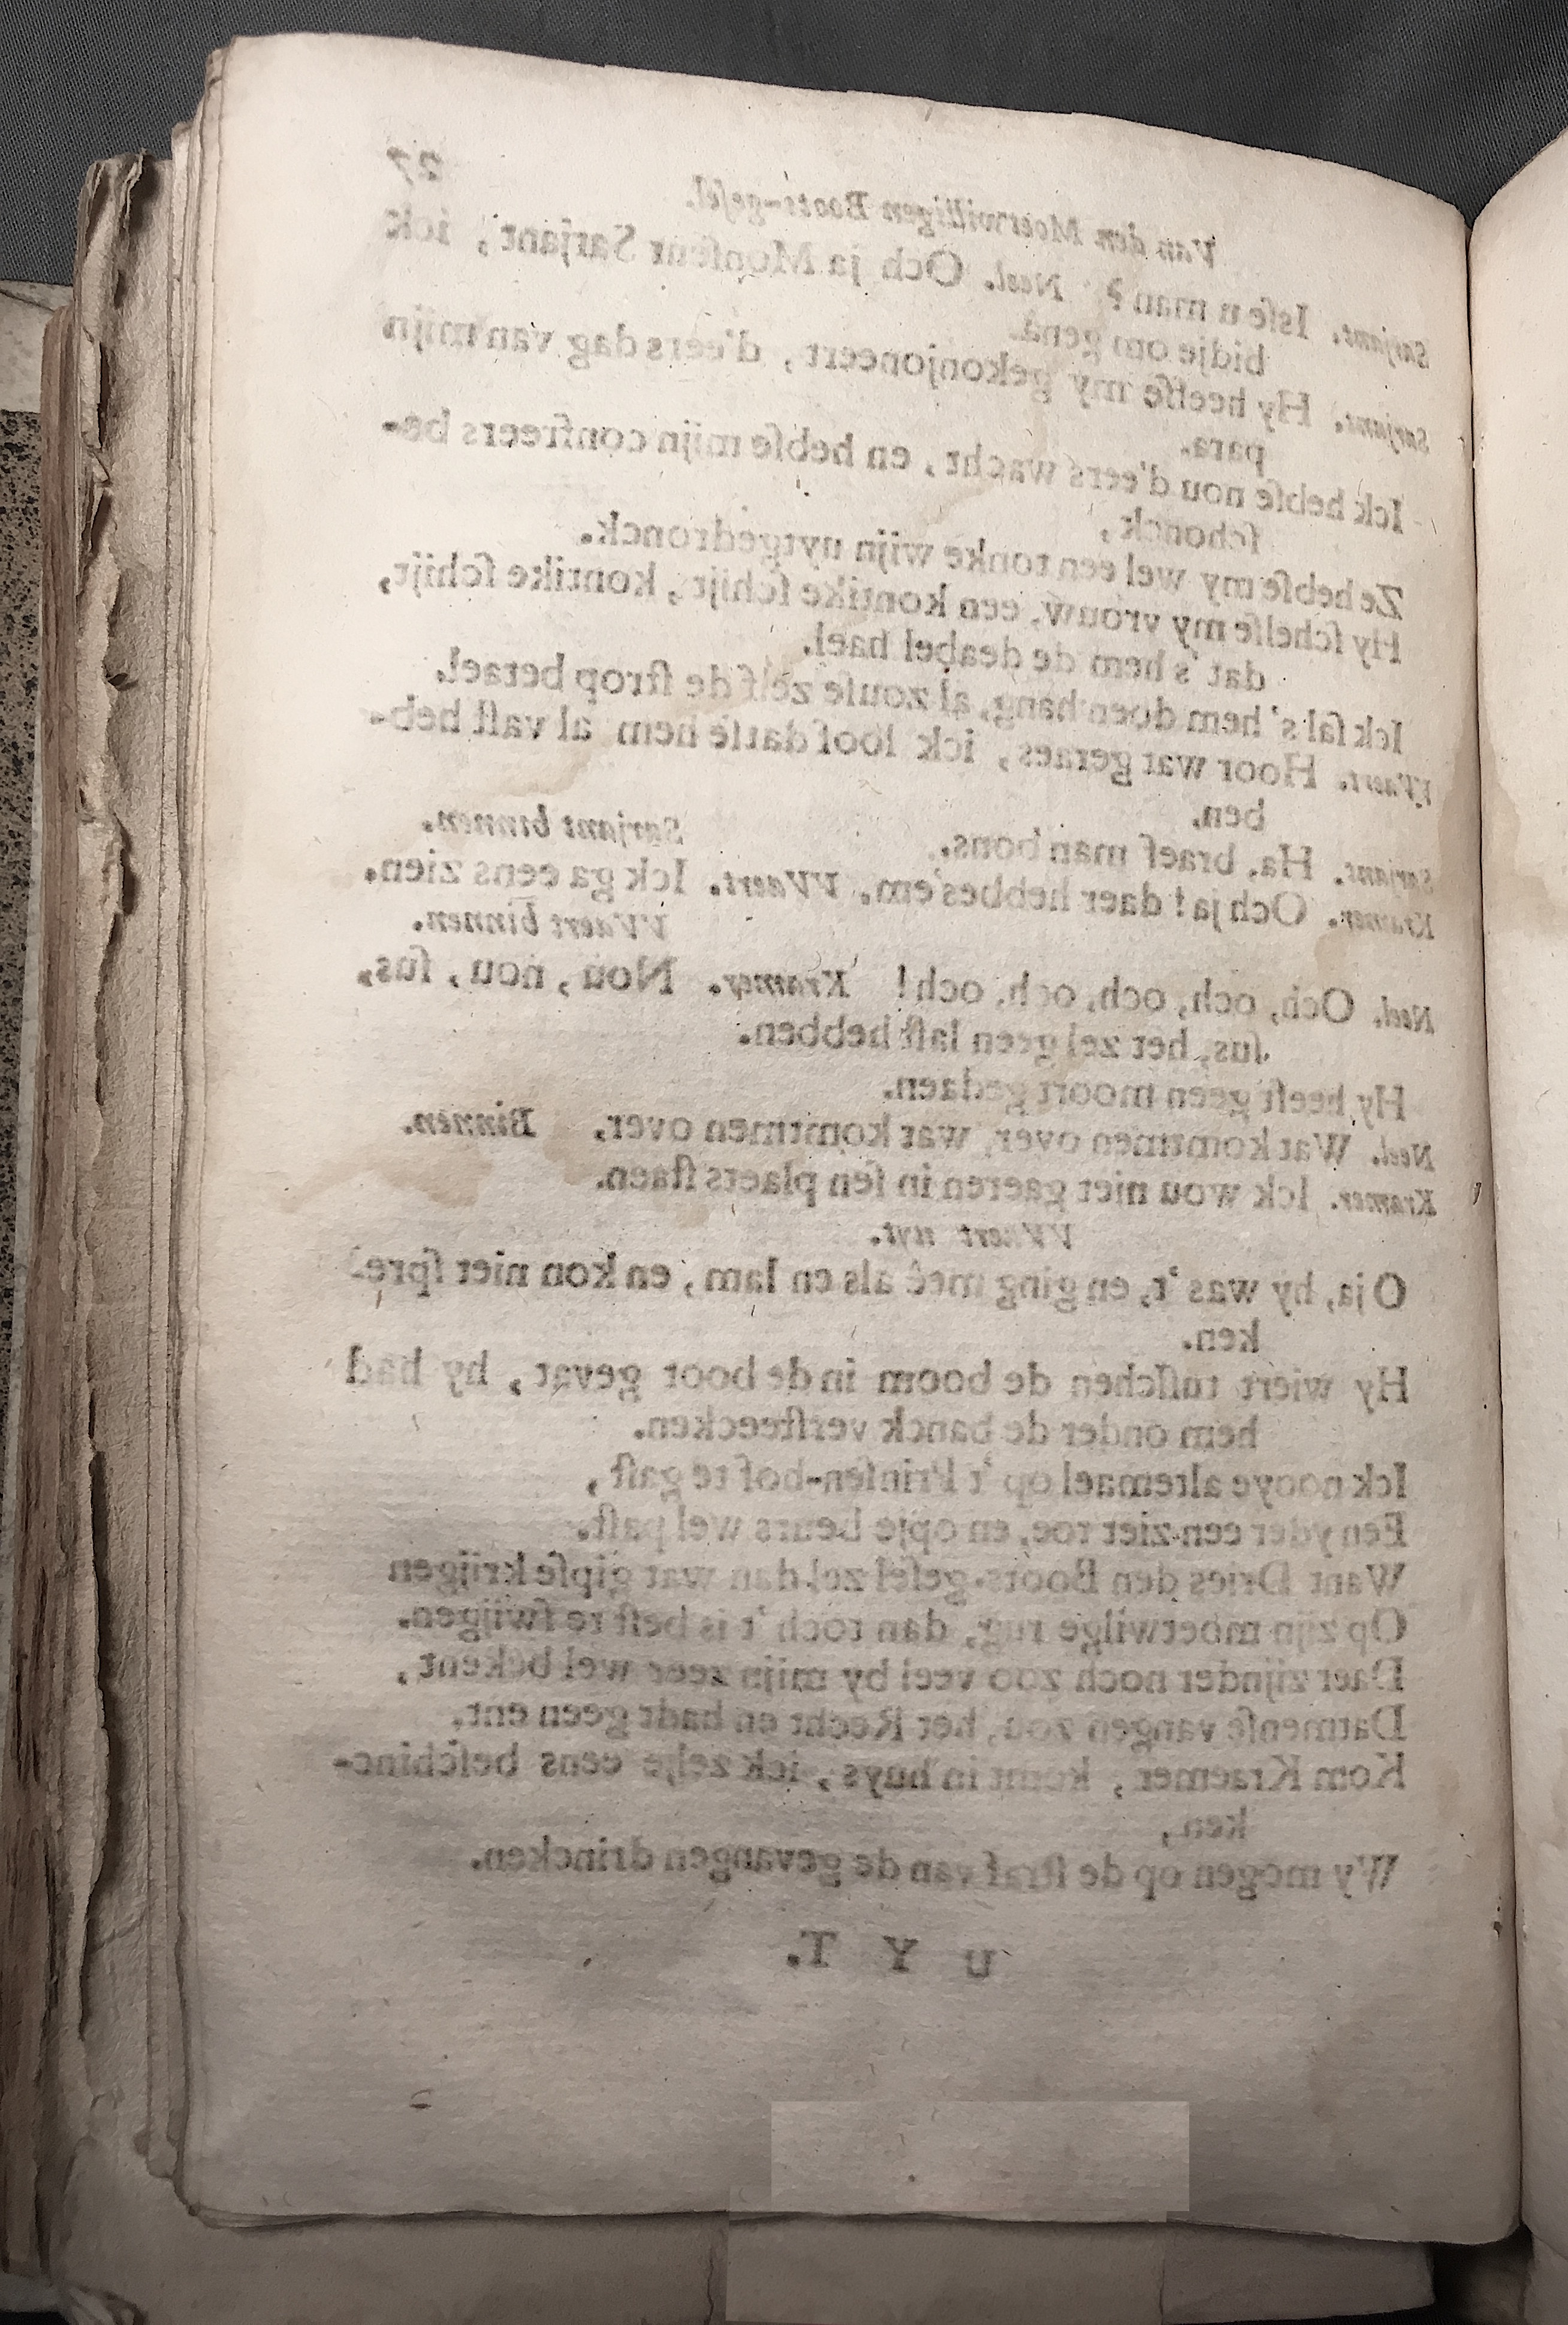 Van den Moetwilligen Boots-geſel. 27
Sarjant. Isſe u man? Neel. Och ja Monſeur Sarjant, ick
bidje om genâ.
Sarjant. Hy heefſe my gekonjoneert, d'eers dag van mijn
para.
Ick hebſe nou d'eers wacht, en hebſe mijn confreers be-
ſchonck,
Ze hebſe my wel een tonke wijn uytgedronck.
Hy ſchelſe my vrouw, een kontike ſchijt, kontike ſchijt,
dat 's hem de deabel hael.
Ick ſal s' hem doen hang, al zouſe zelf de ſtrop betael.
VVaert. Hoor wat geraes, ick loof datſe hem al vaſt heb-
ben.
Sarjant binnen.
Sarjant. Ha, braef man bons.
Kramer. Och ja! daer hebbes'em. VVaert. Ick ga eens zien.
VVaert binnen.
Neel. Och, och, och, och, och! Kramer. Nou, nou, ſus,
ſus, het zel geen laſt hebben.
Hy heeft geen moort gedaen.
Neel. Wat komtmen over, wat komtmen over. Binnen.
Kramer. Ick wou niet gaeren in ſen plaets ſtaen.
VVaert uyt.
O ja, hy was 't, en ging meê als en lam, en kon niet ſpre-
ken.
Hy wiert tuſſchen de boom in de boot gevat, hy had
hem onder de banck verſteecken.
Ick nooye altemael op 't Prinſen-hof te gaſt,
Een yder een ziet toe, en opje beurs wel paſt.
Want Dries den Boots-geſel zel dan wat gipſe krijgen
Op zijn moetwilge rug, dan toch 't is beſt te ſwijgen.
Daer zijnder noch zoo veel by mijn zeer wel bekent,
Datmenſe vangen zou, het Recht en hadt geen ent.
Kom Kraemer, komt in huys, ick zelje eens beſchinc-
ken,
Wy mogen op de ſtraf van de gevangen drincken.
U Y T.